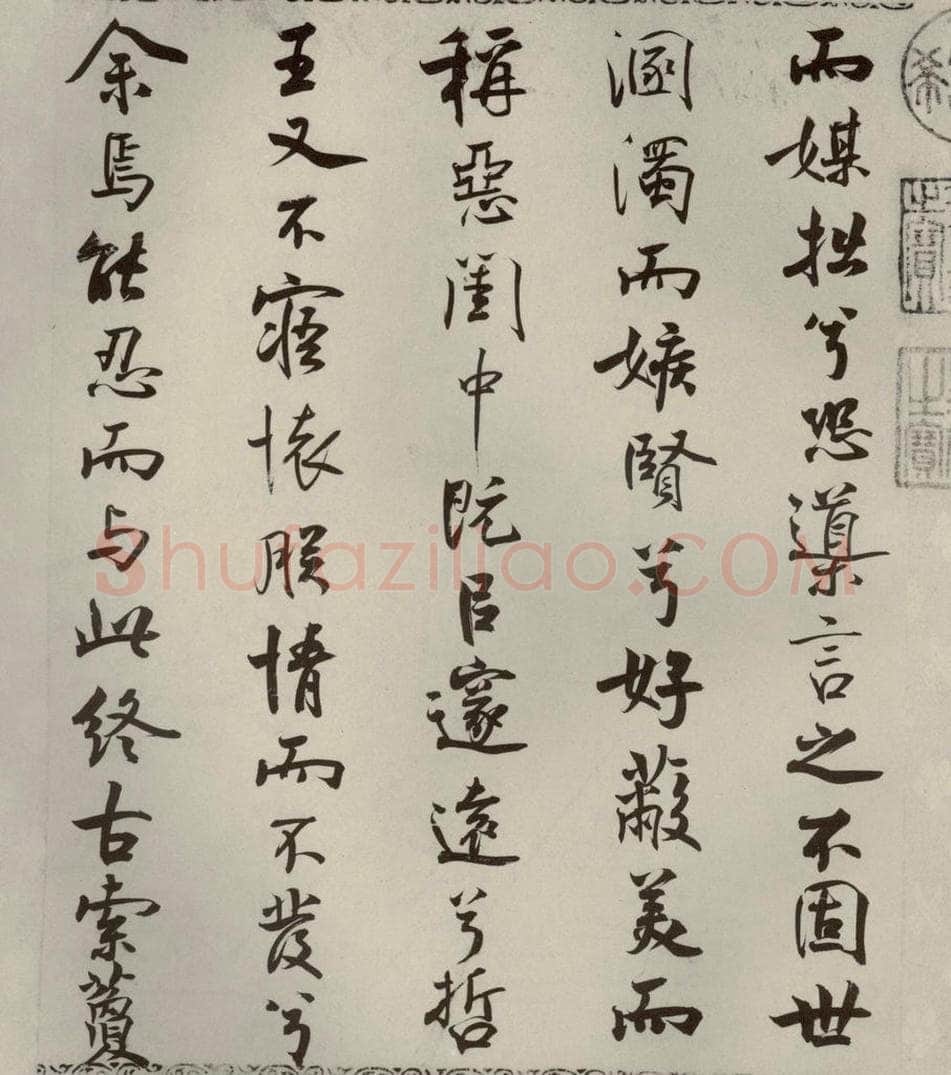 而媒拙兮恐導言之不固世
溷濁而嫉賢兮好蔽美而
稱惡閨中既邃遠兮哲
王又不寤懷朕情而不發兮
余焉能忍而與此終古索藑
Shufaziliao.COM
之寶
之寶